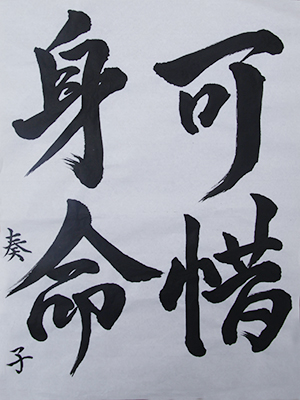 可惜
身命
奏子